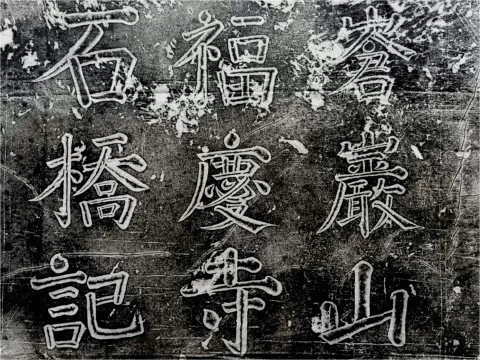 蒼巖山
福慶寺
石橋記